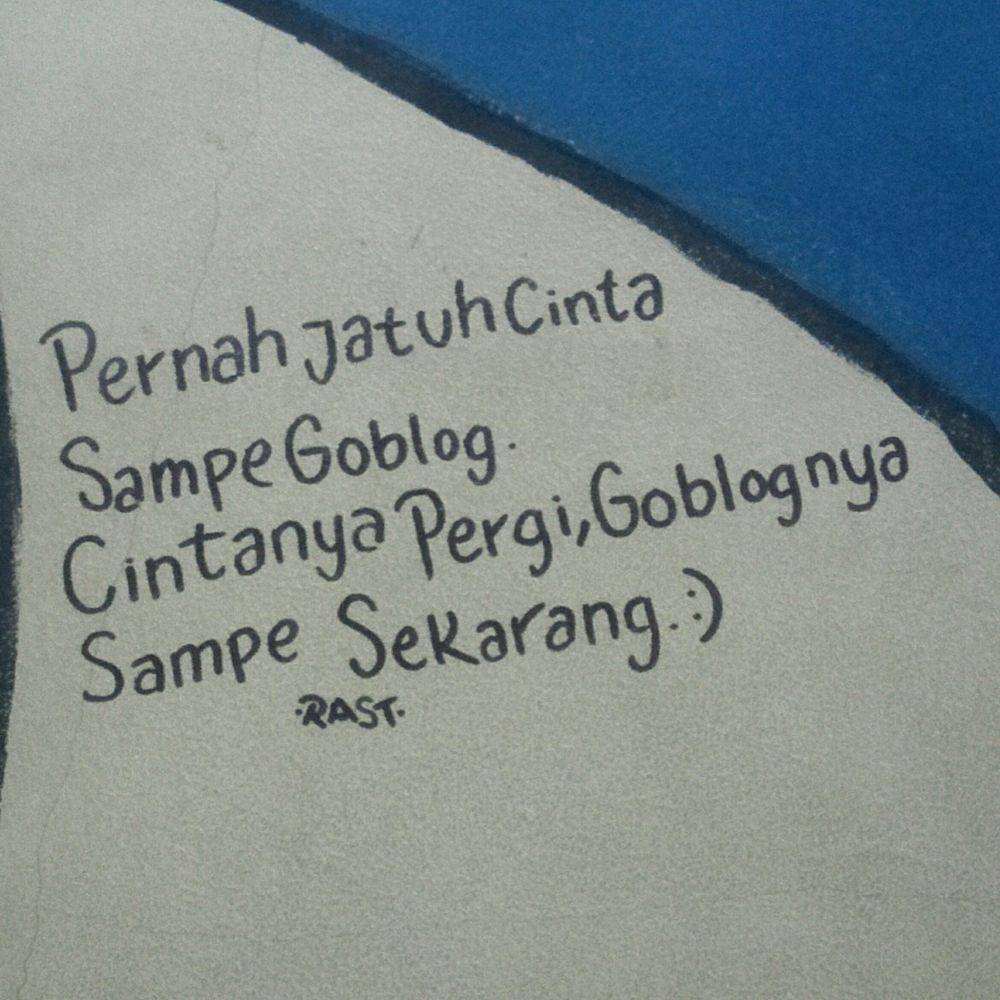 Pernah Jatuh Cinta
Sampe Goblog.
Cintanya Pergi, Goblognya
Sampe Sekarang. :)
·RAST·